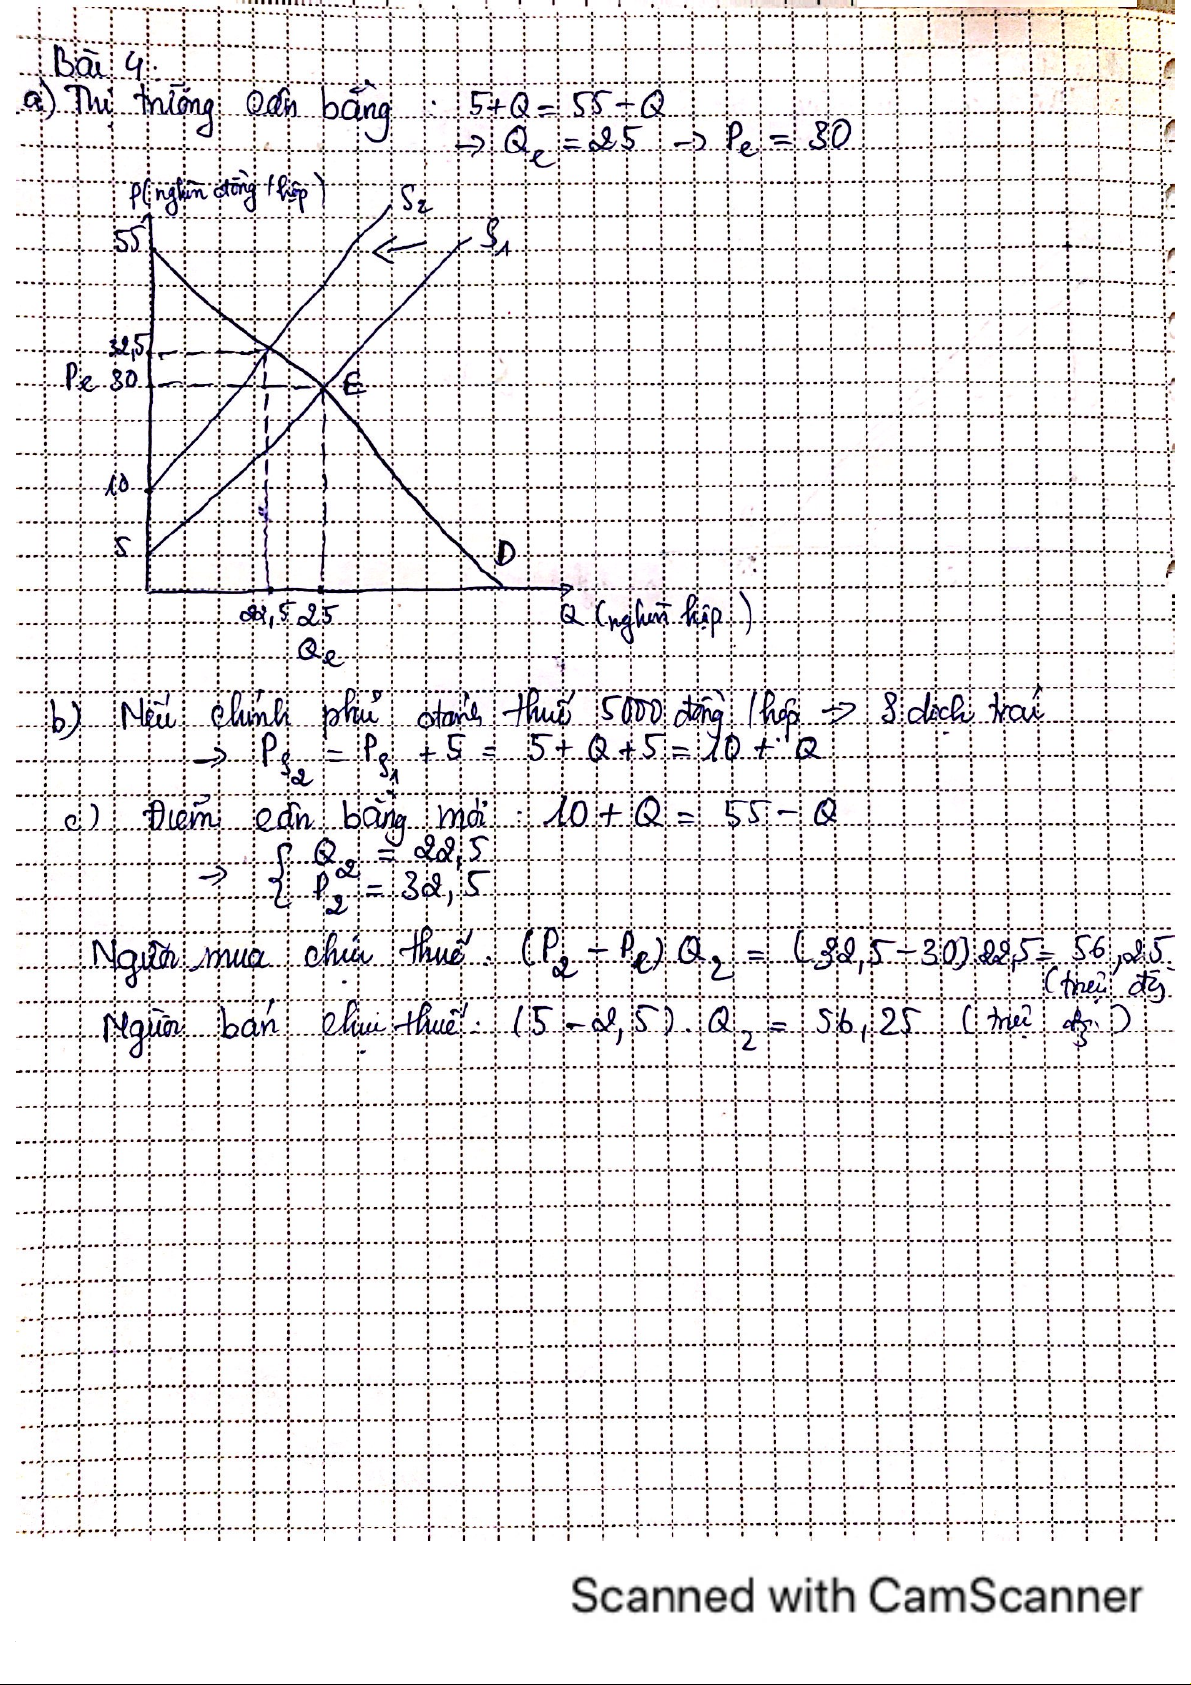 Bài 4:
a) Thị trường cân bằng : 5+Q = 55-Q
→ Qe = 25 → Pe = 30
P(nghìn đồng/hộp)
S2
S1
55
32,5
Pe 30
E
10
5
D
22,5 25
Q (nghìn hộp)
Qe
b) Nếu chính phủ đánh thuế 5000 đồng/hộp → S dịch trái
→ PS2 = PS1 + 5 = 5 + Q + 5 = 10 + Q
c) Điểm cân bằng mới : 10 + Q = 55 - Q
→ { Q2 = 22,5
P2 = 32,5
Người mua chịu thuế : (P2 - Pe) Q2 = (32,5-30) 22,5 = 56,25
(triệu đg)
Người bán chịu thuế : (5 - 2,5) . Q2 = 56,25 (triệu đg)
Scanned with CamScanner